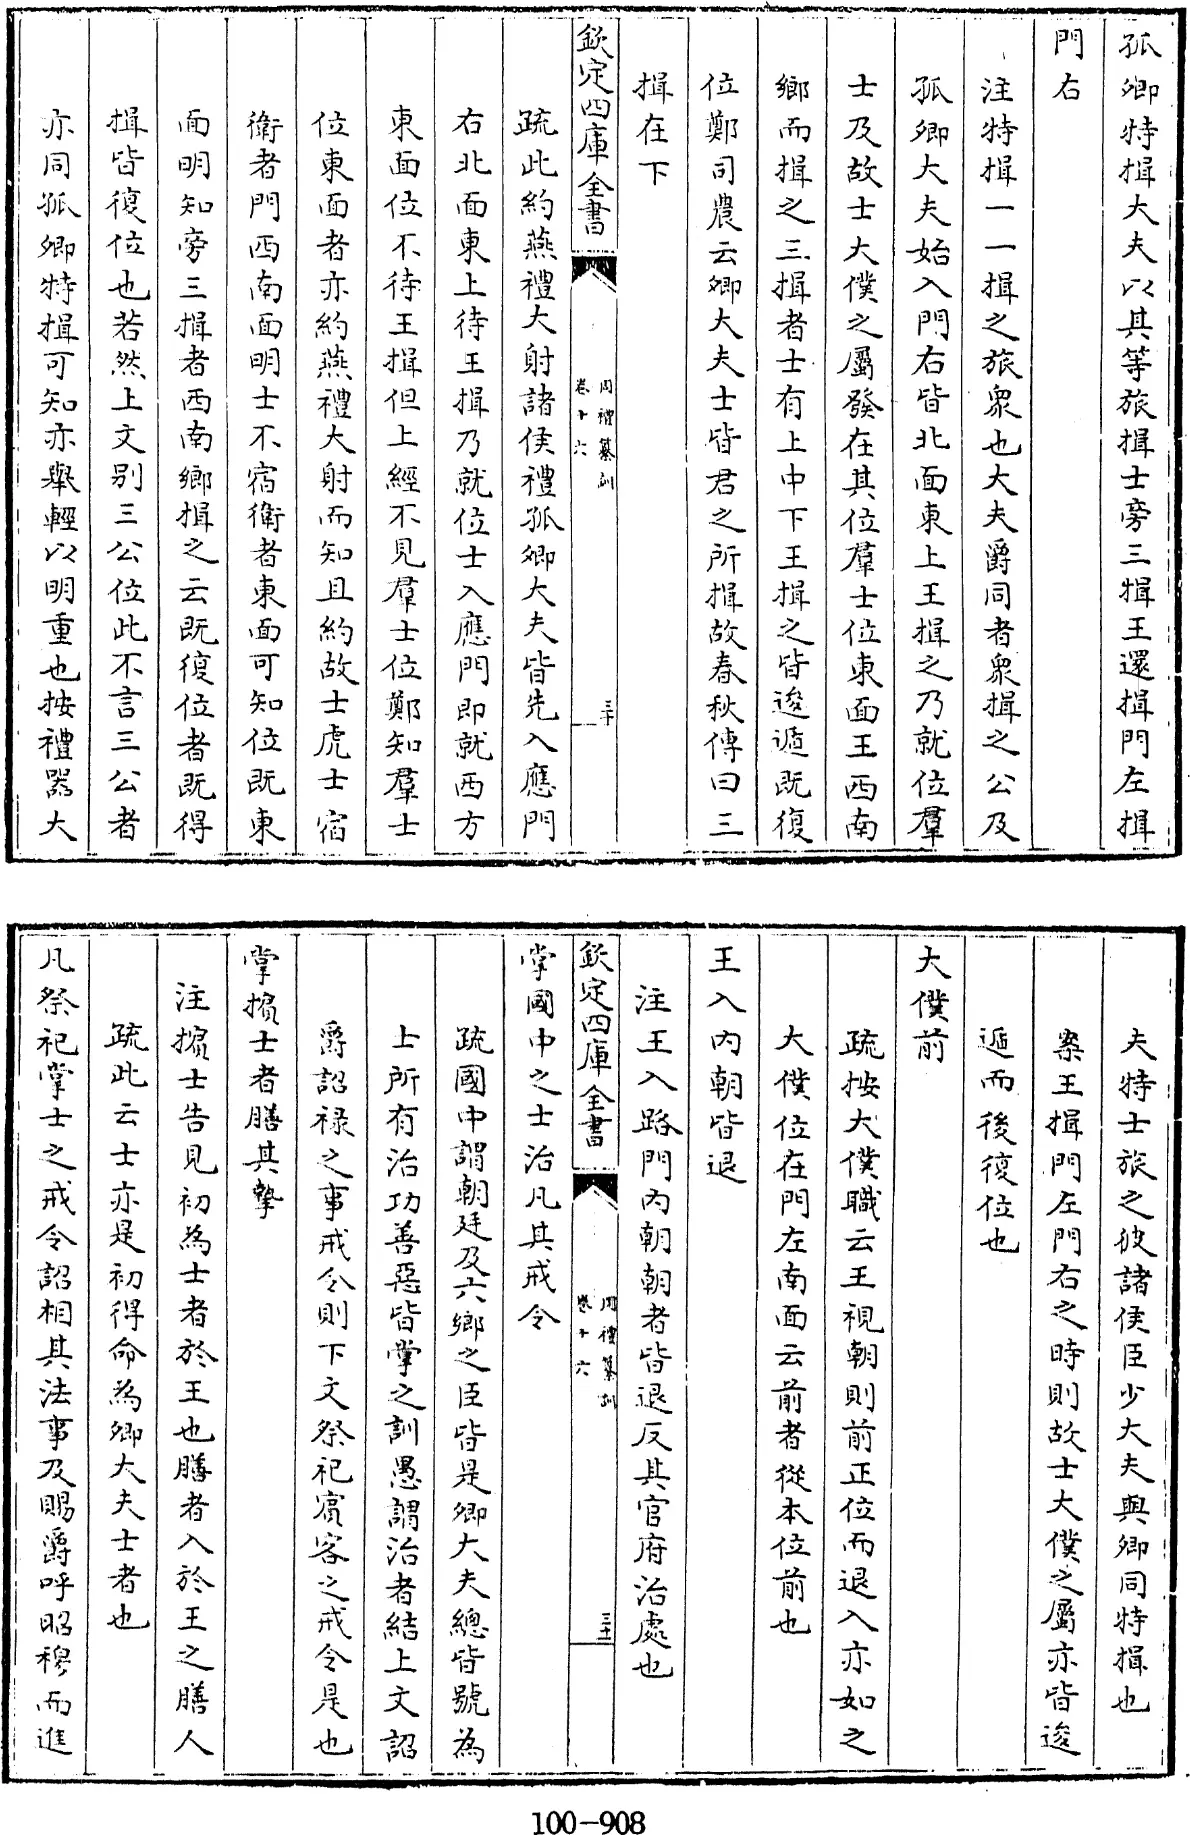 孤卿特揖大夫以其等旅揖士旁三揖王還揖門左揖
門右
注特揖一一揖之旅衆也大夫爵同者衆揖之公及
孤卿大夫始入門右皆北面東上王揖之乃就位羣
士及故士大僕之屬發在其位羣士位東面王西南
鄉而揖之三揖者士有上中下王揖之皆逡遁既復
位鄭司農云卿大夫士皆君之所揖故春秋傳曰三
揖在下
欽定四庫全書
周禮纂訓
卷十六
三十
疏此約燕禮大射諸侯禮孤卿大夫皆先入應門
右北面東上待王揖乃就位士入應門即就西方
東面位不待王揖但上經不見羣士位鄭知羣士
位東面者亦約燕禮大射而知且約故士虎士宿
衛者門西南面明士不宿衛者東面可知位既東
面明知旁三揖者西南鄉揖之云既復位者既得
揖皆復位也若然上文别三公位此不言三公者
亦同孤卿特揖可知亦舉輕以明重也按禮器大
夫特士旅之彼諸侯臣少大夫與卿同特揖也
案王揖門左門右之時則故士大僕之屬亦皆逡
遁而後復位也
大僕前
疏按大僕職云王視朝則前正位而退入亦如之
大僕位在門左南面云前者從本位前也
王入内朝皆退
注王入路門内朝朝者皆退反其官府治處也
欽定四庫全書
周禮纂訓
卷十六
三十一
掌國中之士治凡其戒令
疏國中謂朝廷及六鄉之臣皆是卿大夫總皆號為
士所有治功善惡皆掌之訓愚謂治者結上文詔
爵詔禄之事戒令則下文祭祀賓客之戒令是也
掌擯士者膳其摯
注擯士告見初為士者於王也膳者入於王之膳人
疏此云士亦是初得命為卿大夫士者也
凡祭祀掌士之戒令詔相其法事及賜爵呼昭穆而進
100-908